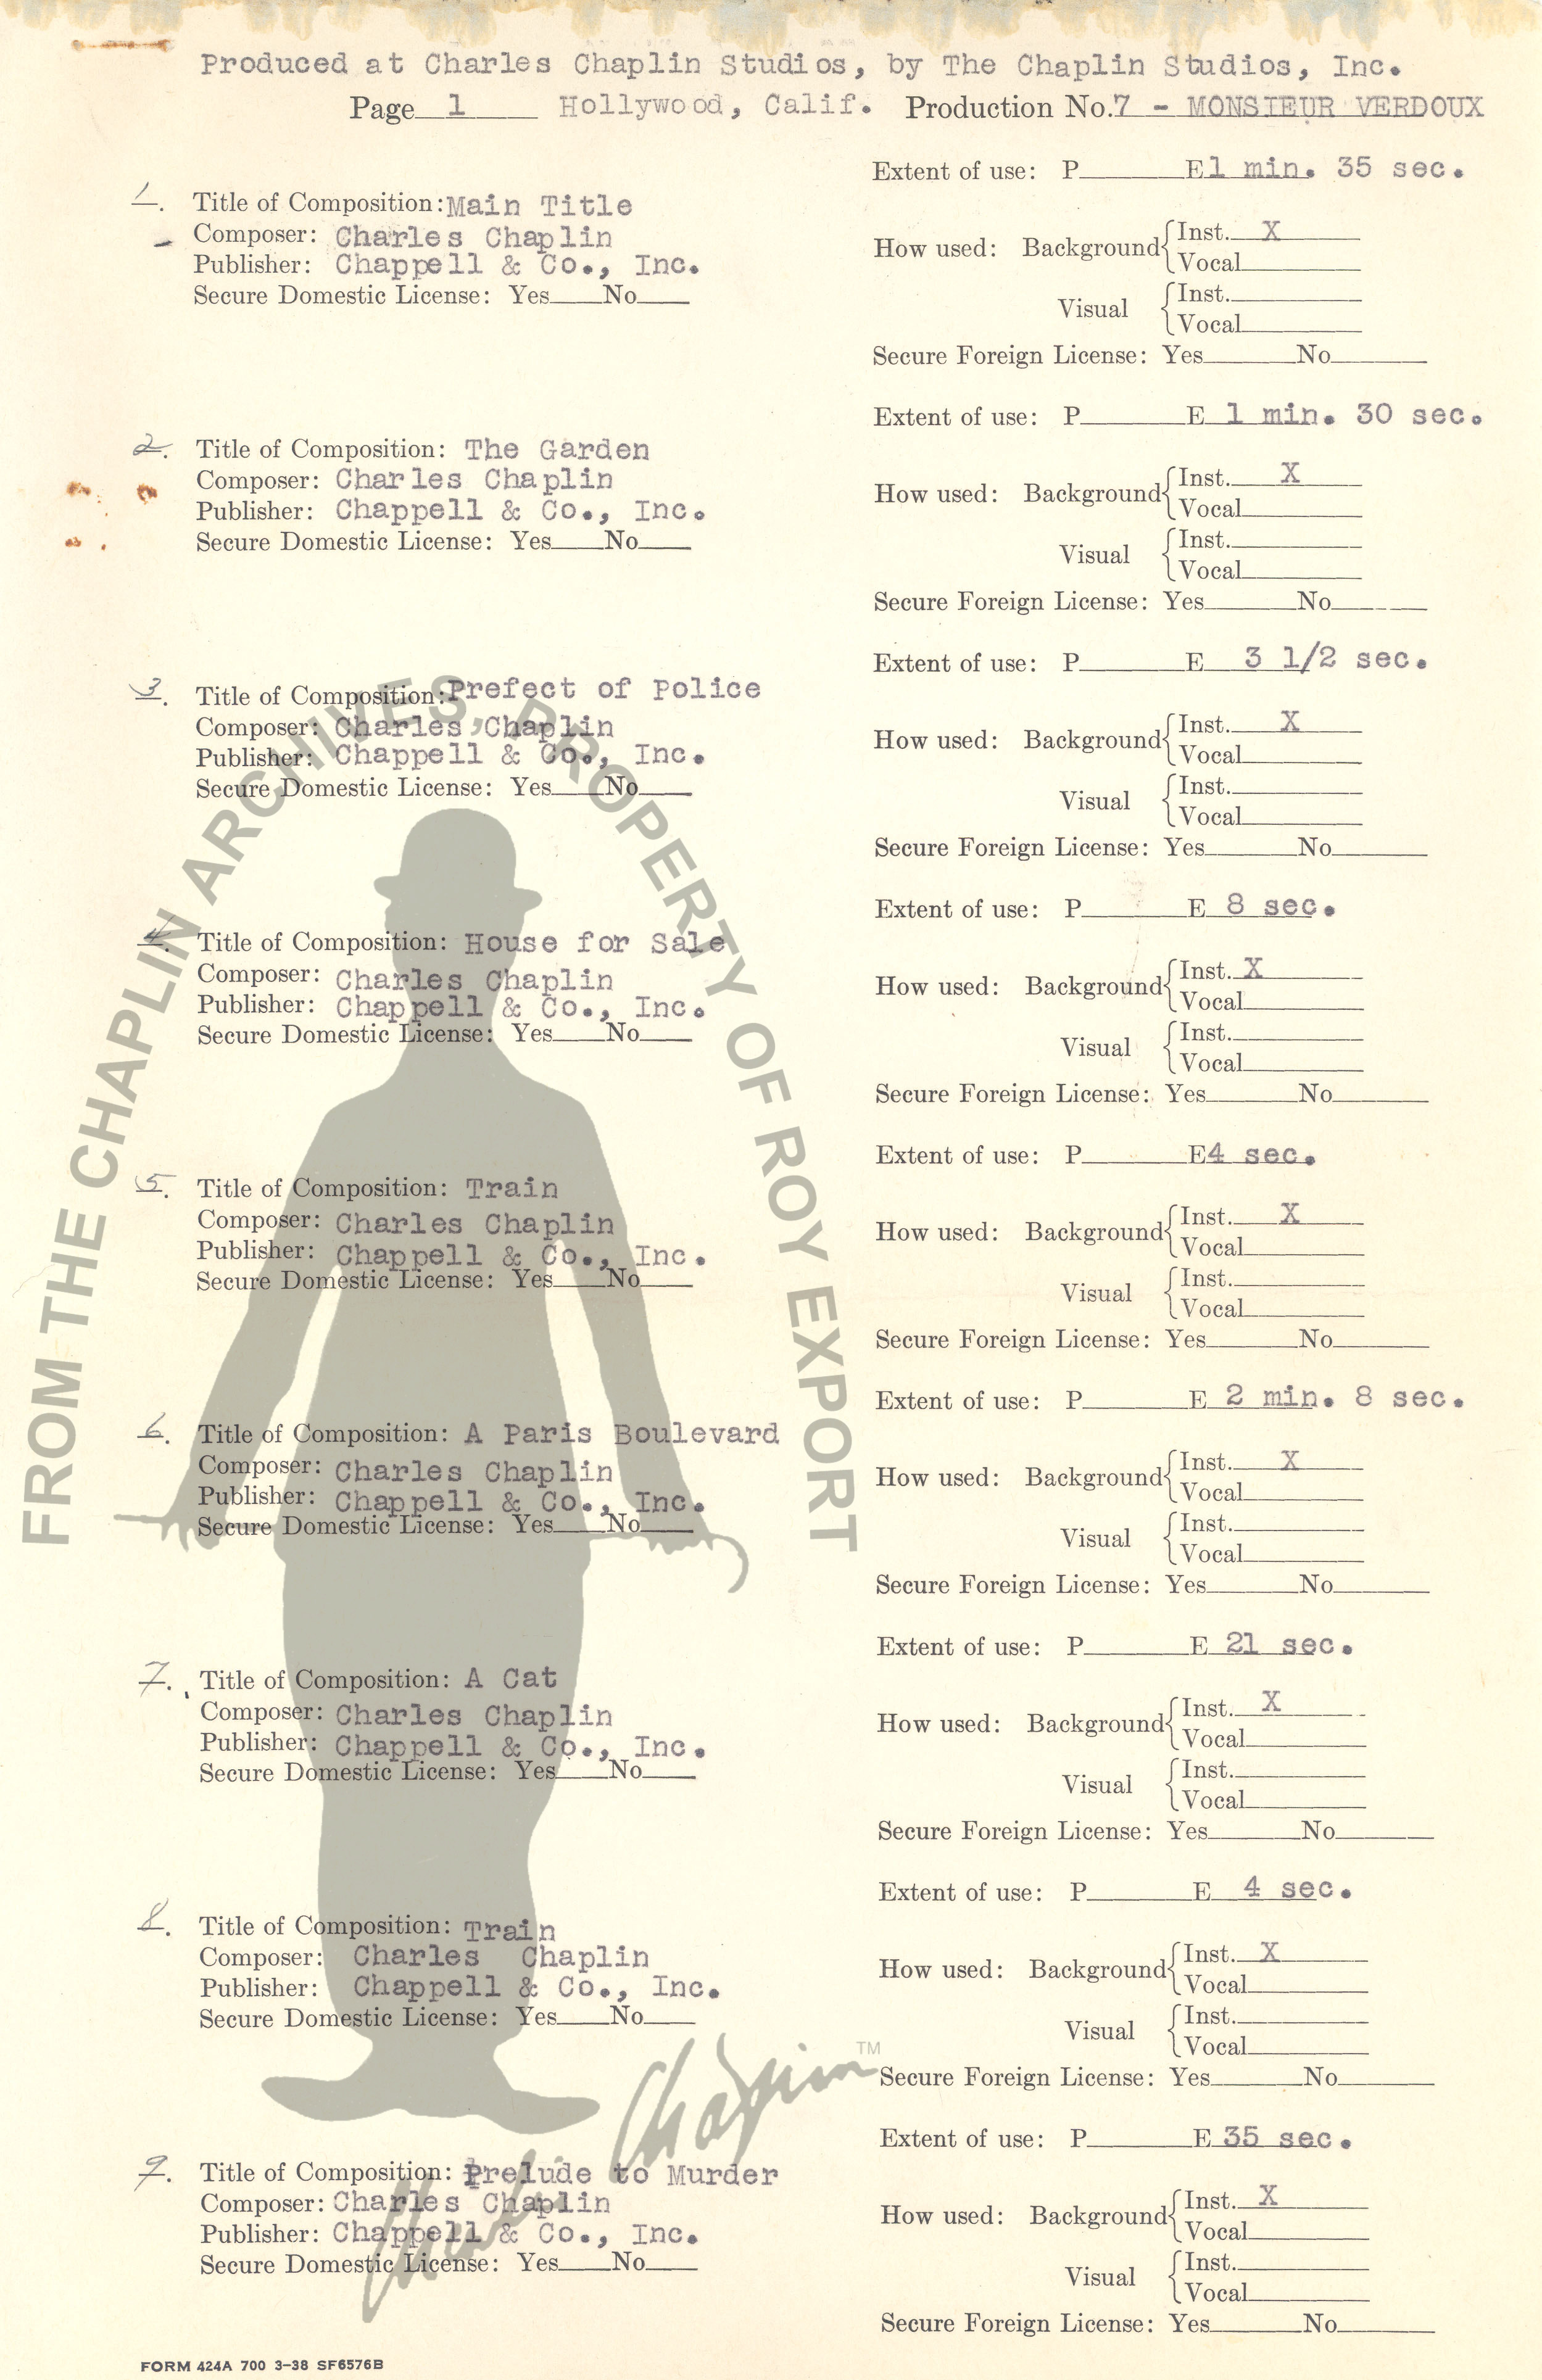 Produced at Charles Chaplin Studios, by The Chaplin Studios, Inc.
Page 1 Hollywood, Calif. Production No. 7 - MONSIEUR VERDOUX
Extent of use: P E 1 min. 35 sec.
1. Title of Composition: Main Title
Composer: Charles Chaplin
Publisher: Chappell & Co., Inc.
Secure Domestic License: Yes No
How used: Background { Inst. X
Vocal
Visual { Inst.
Vocal
Secure Foreign License: Yes No
Extent of use: P E 1 min. 30 sec.
2. Title of Composition: The Garden
Composer: Charles Chaplin
Publisher: Chappell & Co., Inc.
Secure Domestic License: Yes No
How used: Background { Inst. X
Vocal
Visual { Inst.
Vocal
Secure Foreign License: Yes No
Extent of use: P E 3 1/2 sec.
3. Title of Composition: Prefect of Police
Composer: Charles Chaplin
Publisher: Chappell & Co., Inc.
Secure Domestic License: Yes No
How used: Background { Inst. X
Vocal
Visual { Inst.
Vocal
Secure Foreign License: Yes No
Extent of use: P E 8 sec.
4. Title of Composition: House for Sale
Composer: Charles Chaplin
Publisher: Chappell & Co., Inc.
Secure Domestic License: Yes No
How used: Background { Inst. X
Vocal
Visual { Inst.
Vocal
Secure Foreign License: Yes No
Extent of use: P E 4 sec.
5. Title of Composition: Train
Composer: Charles Chaplin
Publisher: Chappell & Co., Inc.
Secure Domestic License: Yes No
How used: Background { Inst. X
Vocal
Visual { Inst.
Vocal
Secure Foreign License: Yes No
Extent of use: P E 2 min. 8 sec.
6. Title of Composition: A Paris Boulevard
Composer: Charles Chaplin
Publisher: Chappell & Co., Inc.
Secure Domestic License: Yes No
How used: Background { Inst. X
Vocal
Visual { Inst.
Vocal
Secure Foreign License: Yes No
Extent of use: P E 21 sec.
7. Title of Composition: A Cat
Composer: Charles Chaplin
Publisher: Chappell & Co., Inc.
Secure Domestic License: Yes No
How used: Background { Inst. X
Vocal
Visual { Inst.
Vocal
Secure Foreign License: Yes No
Extent of use: P E 4 sec.
8. Title of Composition: Train
Composer: Charles Chaplin
Publisher: Chappell & Co., Inc.
Secure Domestic License: Yes No
How used: Background { Inst. X
Vocal
Visual { Inst.
Vocal
Secure Foreign License: Yes No
Extent of use: P E 35 sec.
9. Title of Composition: Prelude to Murder
Composer: Charles Chaplin
Publisher: Chappell & Co., Inc.
Secure Domestic License: Yes No
How used: Background { Inst. X
Vocal
Visual { Inst.
Vocal
Secure Foreign License: Yes No
FORM 424A 700 3-38 SF6576B
FROM THE CHAPLIN ARCHIVES, PROPERTY OF ROY EXPORT
Charlie Chaplin TM